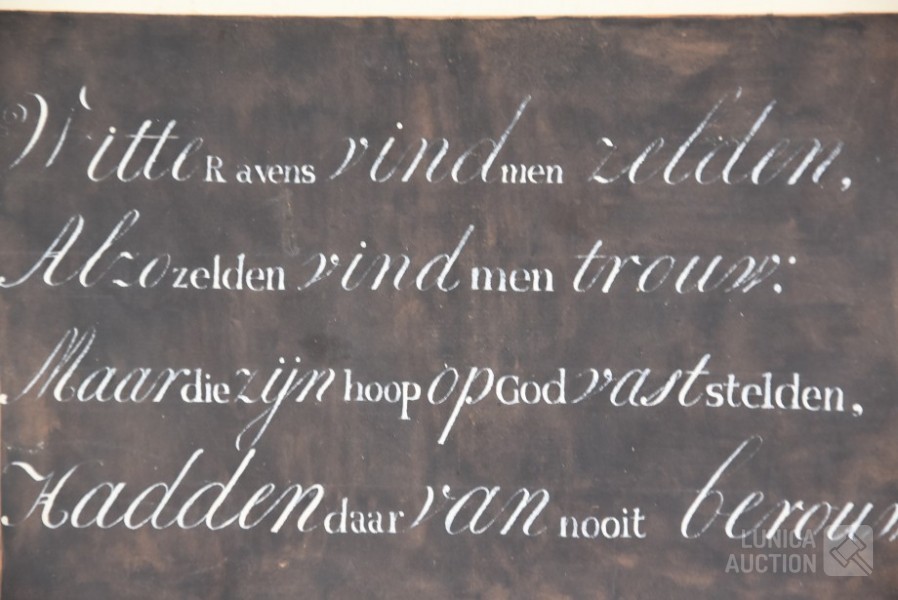 Witte Ravens vind men zelden,
Alzo zelden vind men trouw:
Maar die zijn hoop op God vast stelden,
Hadden daar van nooit berouw
LUNICA
AUCTION